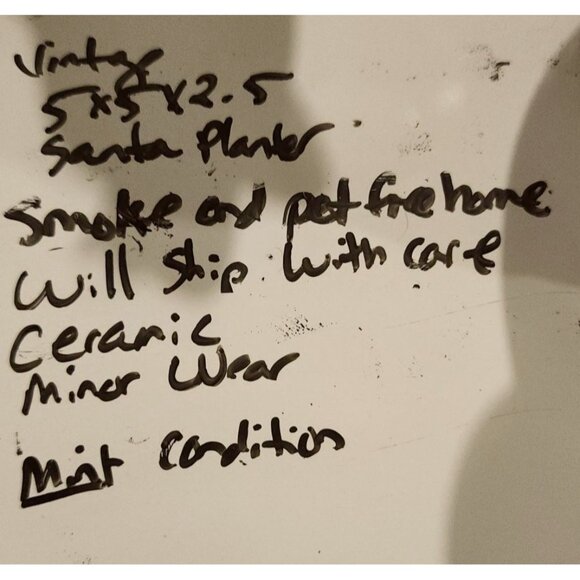 Vintage
5x5x2.5
Santa Planter
Smoke and pet free home
Will ship with care
Ceramic
Minor Wear
Mint Condition